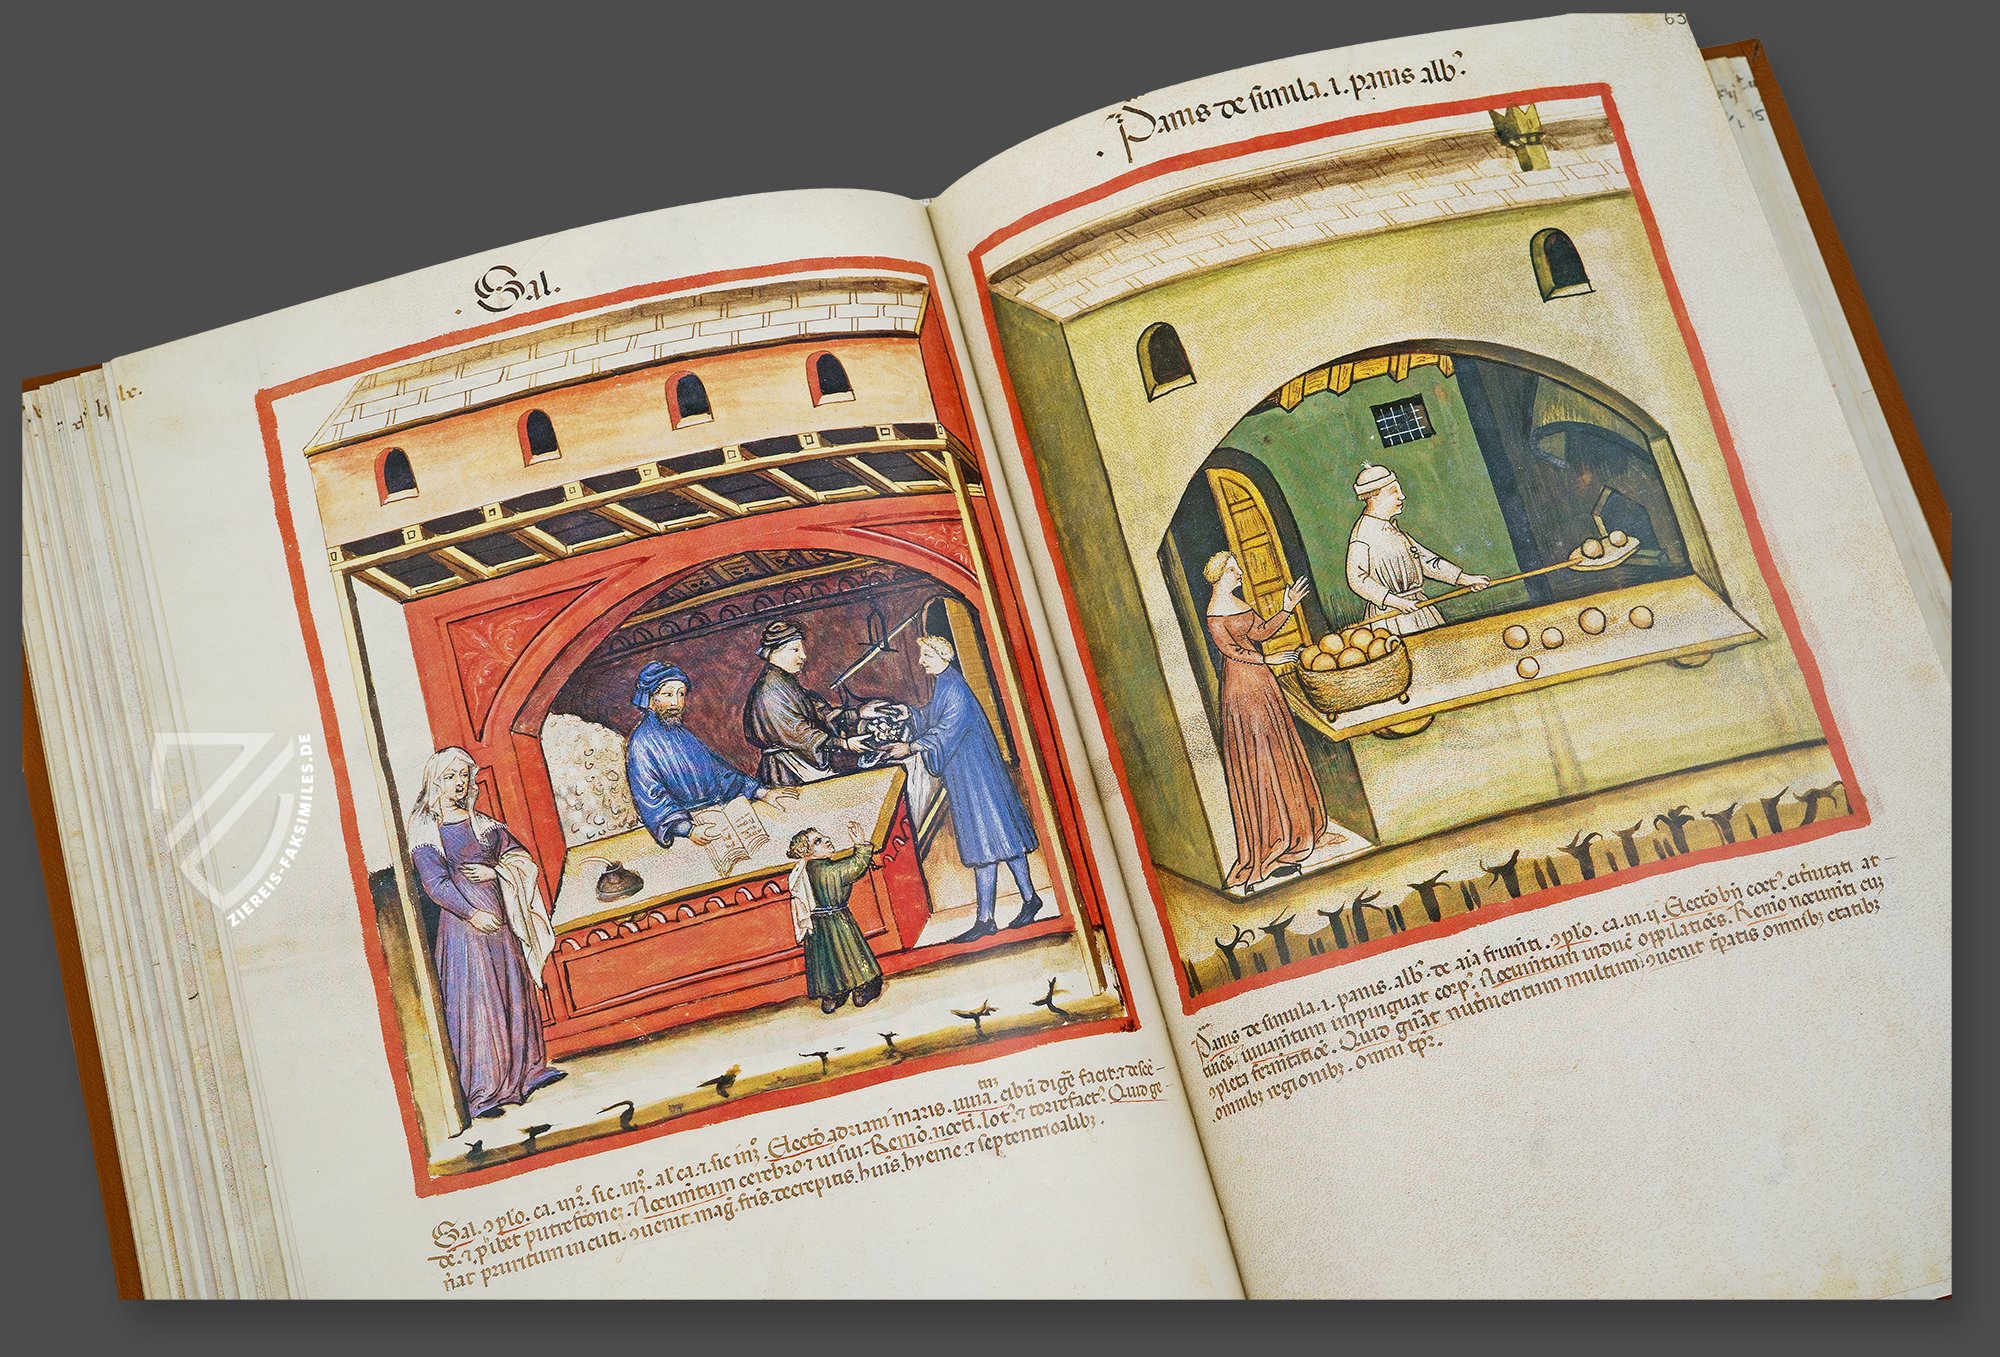 lxx.
. Sal.
Sal. ꝯplo. ca. in 2°. sic. in 3°. al' ca. ⁊. sic in 3°. Electō adriani maris. iuua. cibū digē facit. ⁊ desce-
tuz
dē. ⁊. p̱ibet putrefctōnez. Nocumtum cerebro ⁊ uisui. Remō. nocti. lot'. ⁊ torrefact'. Quid ge-
n̄at pruritum in cuti. ꝯuenit. mag̱. fris. decrepitis. huis. hyeme ⁊ septentrioalibȝ.
63
. Panis de simila. i. panis alb'.
Panis de simila. i. panis. alb'. de aīa frumti. ꝯplo. ca. in. ij. Electō bn̄ coct'. citrinitati at-
tinēs. iuuamtum impinguat corp'. Nocumtum inducē oppilatiōes. Remō nocumti cuȝ
ꝯpleta fermtatiōe. Quid gn̄at nutmentum multum. ꝯuenit tp̄atis. omnibȝ etatibȝ
. omnibȝ regionibȝ. omni tp̄r.
ZIEREIS-FAKSIMILES.DE